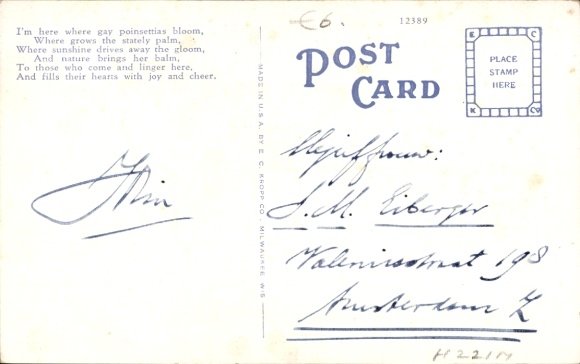 I'm here where gay poinsettias bloom,
Where grows the stately palm,
Where sunshine drives away the gloom,
And nature brings her balm,
To those who come and linger here,
And fills their hearts with joy and cheer.
Wim
MADE IN U.S.A. BY E. C. KROPP CO., MILWAUKEE, WIS.
€6.
12389
POST CARD
E C
PLACE
STAMP
HERE
K Co
Mejuffrouw:
S. M. Eiberger
Valeriusstraat 198
Amsterdam Z
H 22114